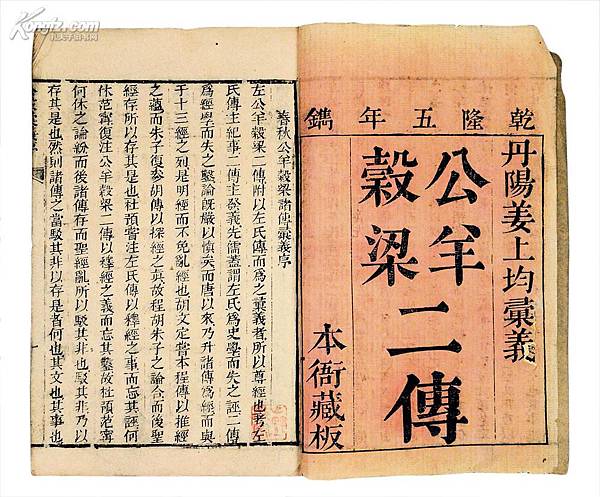 Kongfz.com
乾隆五年鐫
丹陽姜上均彙義
公羊
穀梁
二傳
本衙藏板
春秋公羊穀梁諸傳彙義序
左公羊穀梁二傳附以左氏傳而為之彙義者所以尊經也考左
氏傳主紀事二傳主發義先儒蓋謂左氏為史學而失之誣二傳
為經學而失之鑿論旣嚴以慎矣而唐以來乃升諸傳為經而與
于十三經之列是明經而不免亂經也胡文定嘗本程傳以推經
之蘊而朱子復參胡傳以探經之真故程胡朱子之論合而後聖
經存所以存其是也杜預嘗注左氏傳以釋經之事而忘其誣何
休范甯復注公羊穀梁二傳以釋經之義而忘其鑿故杜預范甯
何休之論紛而後諸傳存而聖經亂所以駁其非也駁其非乃以
存其是也然則諸傳之當駁其非以存是者何也其文也其事也